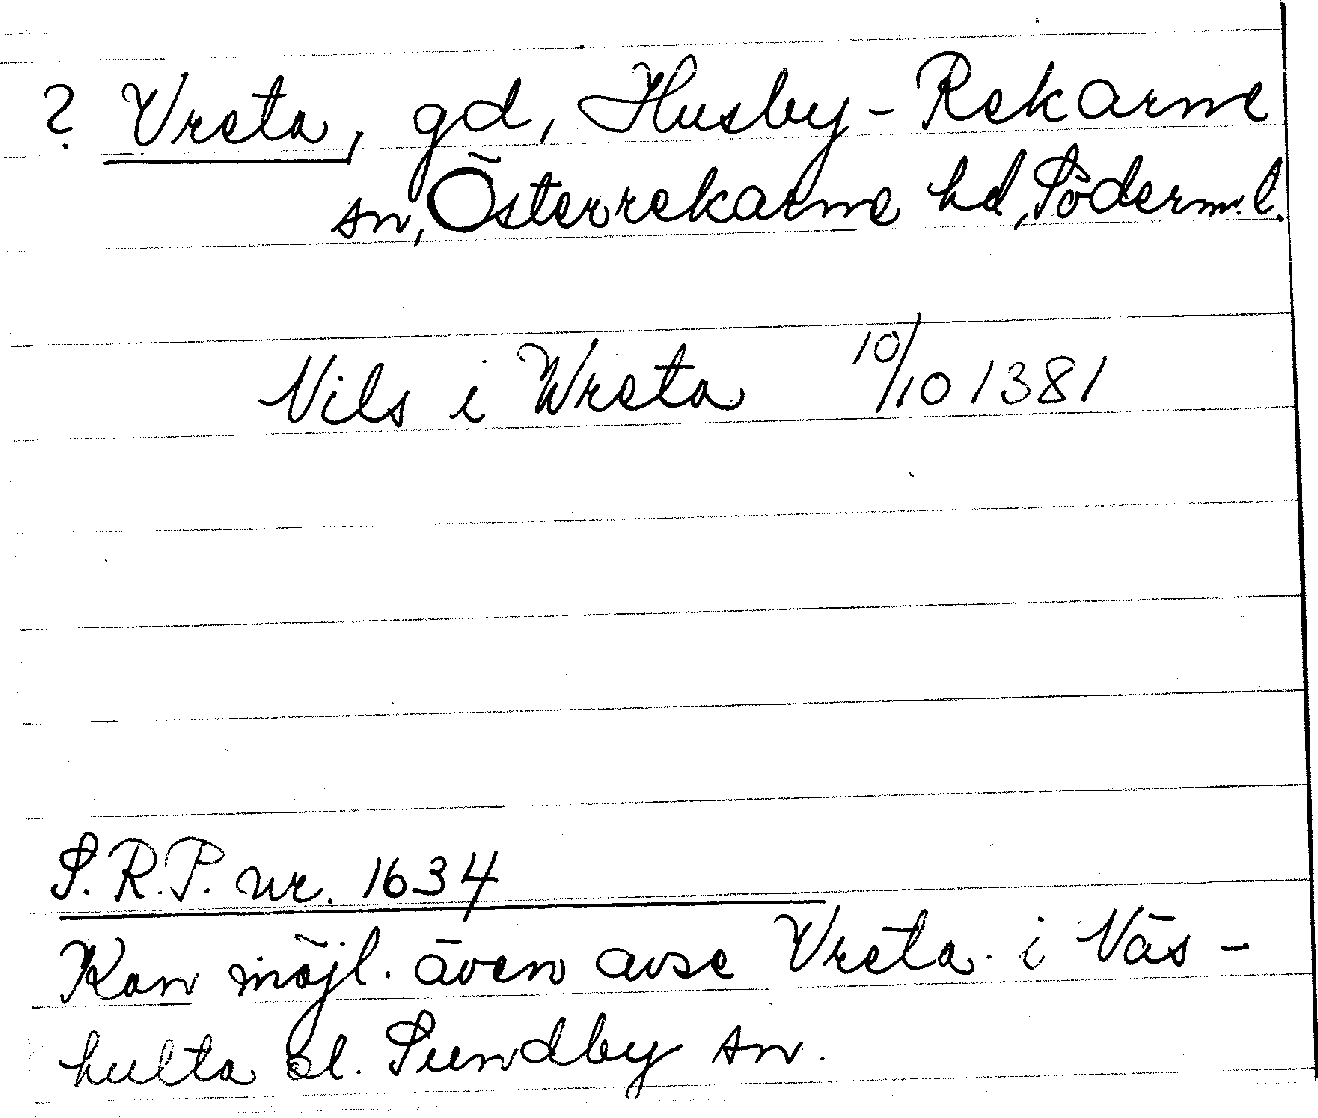 ? Vreta, gd, Husby-Rekarne
sn, Österrekarne hd, Söderml.
Nils i Wreta 10/10 1381
S.R.P. nr. 1634
Kan möjl. även avse Vreta i Näs-
hulta el. Sundby sn.